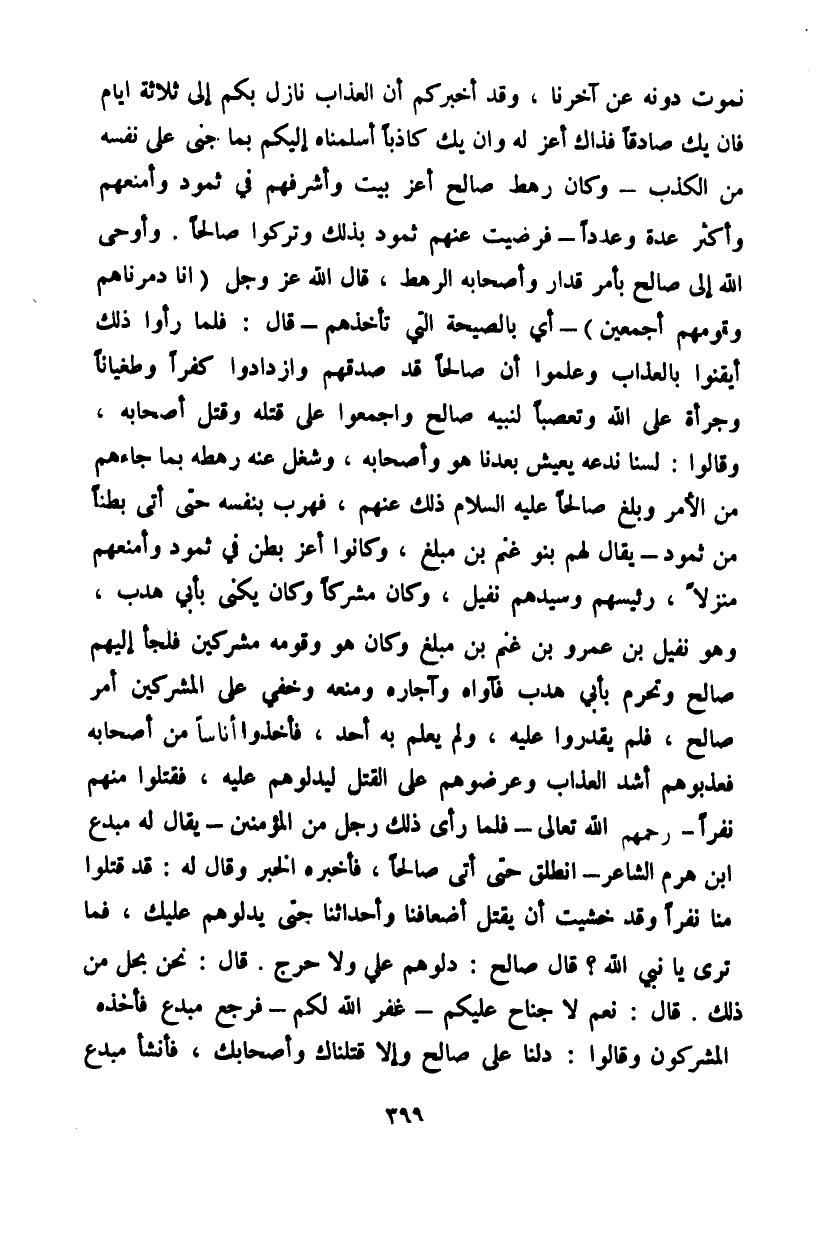 نموت دونه عن آخرنا ، وقد أخبركم أن العذاب نازل بكم إلى ثلاثة ايام
فان يك صادقاً فذاك أعز له وان يك كاذباً أسلمناه إليكم بما جنى على نفسه
من الكذب – وكان رهط صالح أعز بيت وأشرفهم في ثمود وأمنعهم
وأكثر عدة وعدداً – فرضيت عنهم ثمود بذلك وتركوا صالحاً . وأوحى
الله إلى صالح بأمر قدار وأصحابه الرهط ، قال الله عز وجل ( انا دمرناهم
وقومهم أجمعين ) – أي بالصيحة التي تأخذهم – قال : فلما رأوا ذلك
أيقنوا بالعذاب وعلموا أن صالحاً قد صدقهم وازدادوا كفراً وطغياناً
وجرأة على الله وتعصباً لنبيه صالح واجمعوا على قتله وقتل أصحابه ،
وقالوا : لسنا ندعه يعيش بعدنا هو وأصحابه ، وشغل عنه رهطه بما جاءهم
من الأمر وبلغ صالحاً عليه السلام ذلك عنهم ، فهرب بنفسه حتى أتى بطناً
من ثمود – يقال لهم بنو غنم بن مبلغ ، وكانوا أعز بطن في ثمود وأمنعهم
منزلاً ، رئيسهم وسيدهم نفيل ، وكان مشركاً وكان يكنى بأبي هدب ،
وهو نفيل بن عمرو بن غنم بن مبلغ وكان هو وقومه مشركين فلجأ إليهم
صالح وتحرم بأبي هدب فآواه وآجاره ومنعه وخفي على المشركين أمر
صالح ، فلم يقدروا عليه ، ولم يعلم به أحد ، فأخذوا أناساً من أصحابه
فعذبوهم أشد العذاب وعرضوهم على القتل ليدلوهم عليه ، فقتلوا منهم
نفراً – رحمهم الله تعالى – فلما رأى ذلك رجل من المؤمنين – يقال له مبدع
ابن هرم الشاعر – انطلق حتى أتى صالحاً ، فأخبره الخبر وقال له : قد قتلوا
منا نفراً وقد خشيت أن يقتل أضعافنا وأحداثنا حتى يدلوهم عليك ، فما
ترى يا نبي الله ؟ قال صالح : دلوهم علي ولا حرج . قال : نحن بحل من
ذلك . قال : نعم لا جناح عليكم – غفر الله لكم – فرجع مبدع فأخذه
المشركون وقالوا : دلنا على صالح وإلا قتلناك وأصحابك ، فأنشأ مبدع
٣٩٩